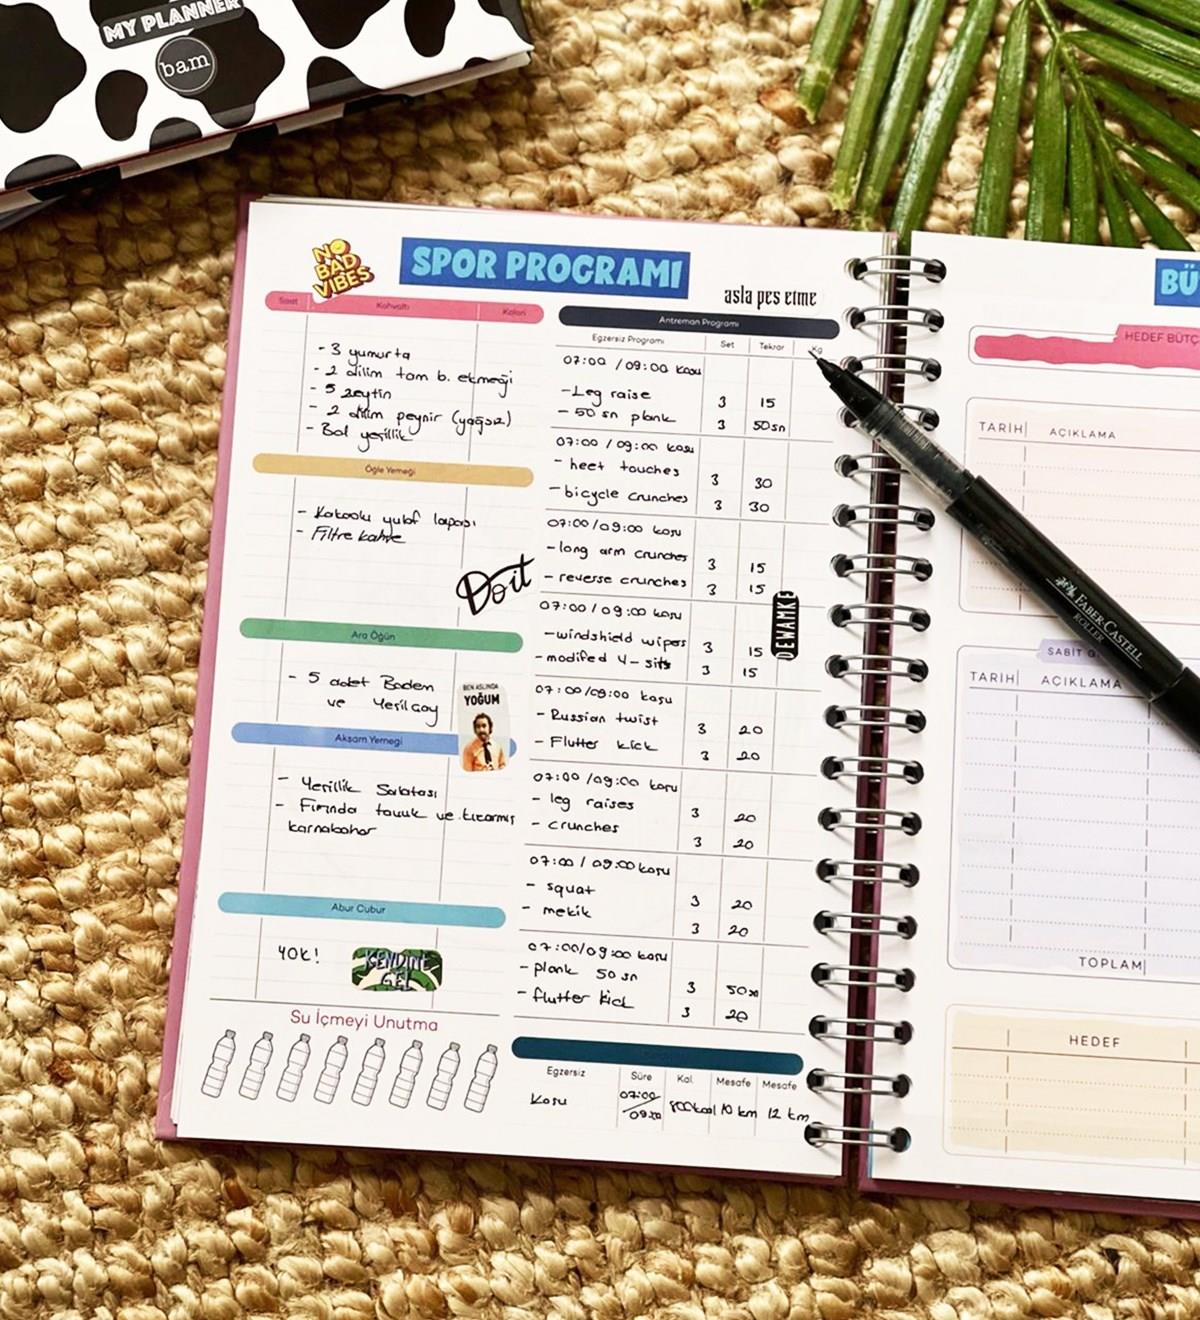 MY PLANNER
bam
NO
BAD
VIBES
SPOR PROGRAMI
asla pes etme
Saat Kahvaltı Kalori
- 3 yumurta
- 2 dilim tam b. ekmeği
- 5 zeytin
- 2 dilim peynir (yağsız)
- Bol yeşillik
Öğle Yemeği
- Kakaolu yulaf lapası
- Filtre kahve
Do it
Ara Öğün
- 5 adet Badem
ve Yeşilçay
BEN ASLINDA
YOĞUM
Akşam Yemeği
- Yeşillik Salatası
- Fırında tavuk ve kızarmış
karnabahar
Abur Cubur
YOK!
KENDİNE
GEL
Su İçmeyi Unutma
Antreman Programı
Egzersiz Programı Set Tekrar Kg
07:00 / 09:00 koşu
- Leg raise 3 15
- 50 sn plank 3 50sn
07:00 / 09:00 koşu
- heet touches 3 30
- bicycle crunches 3 30
07:00 / 09:00 koşu
- long arm crunches 3 15
- reverse crunches 3 15
DEWAMKE
07:00 / 09:00 koşu
- windshield wipers 3 15
- modifed V - sits 3 15
07:00 / 09:00 koşu
- Russian twist 3 20
- Flutter kick 3 20
07:00 / 09:00 koşu
- leg raises 3 20
- crunches 3 20
07:00 / 09:00 koşu
- squat 3 20
- mekik 3 20
07:00 / 09:00 koşu
- plank 50 sn 3 50sn
- flutter kick 3 20
Egzersiz Süre Kal. Mesafe Mesafe
Koşu 07:00 / 09:00 800kcal 10 km 12 km
BÜ
HEDEF BÜTÇ
TARİH AÇIKLAMA
FABER-CASTELL
ROLLER
SABİT G
TARİH AÇIKLAMA
TOPLAM
HEDEF